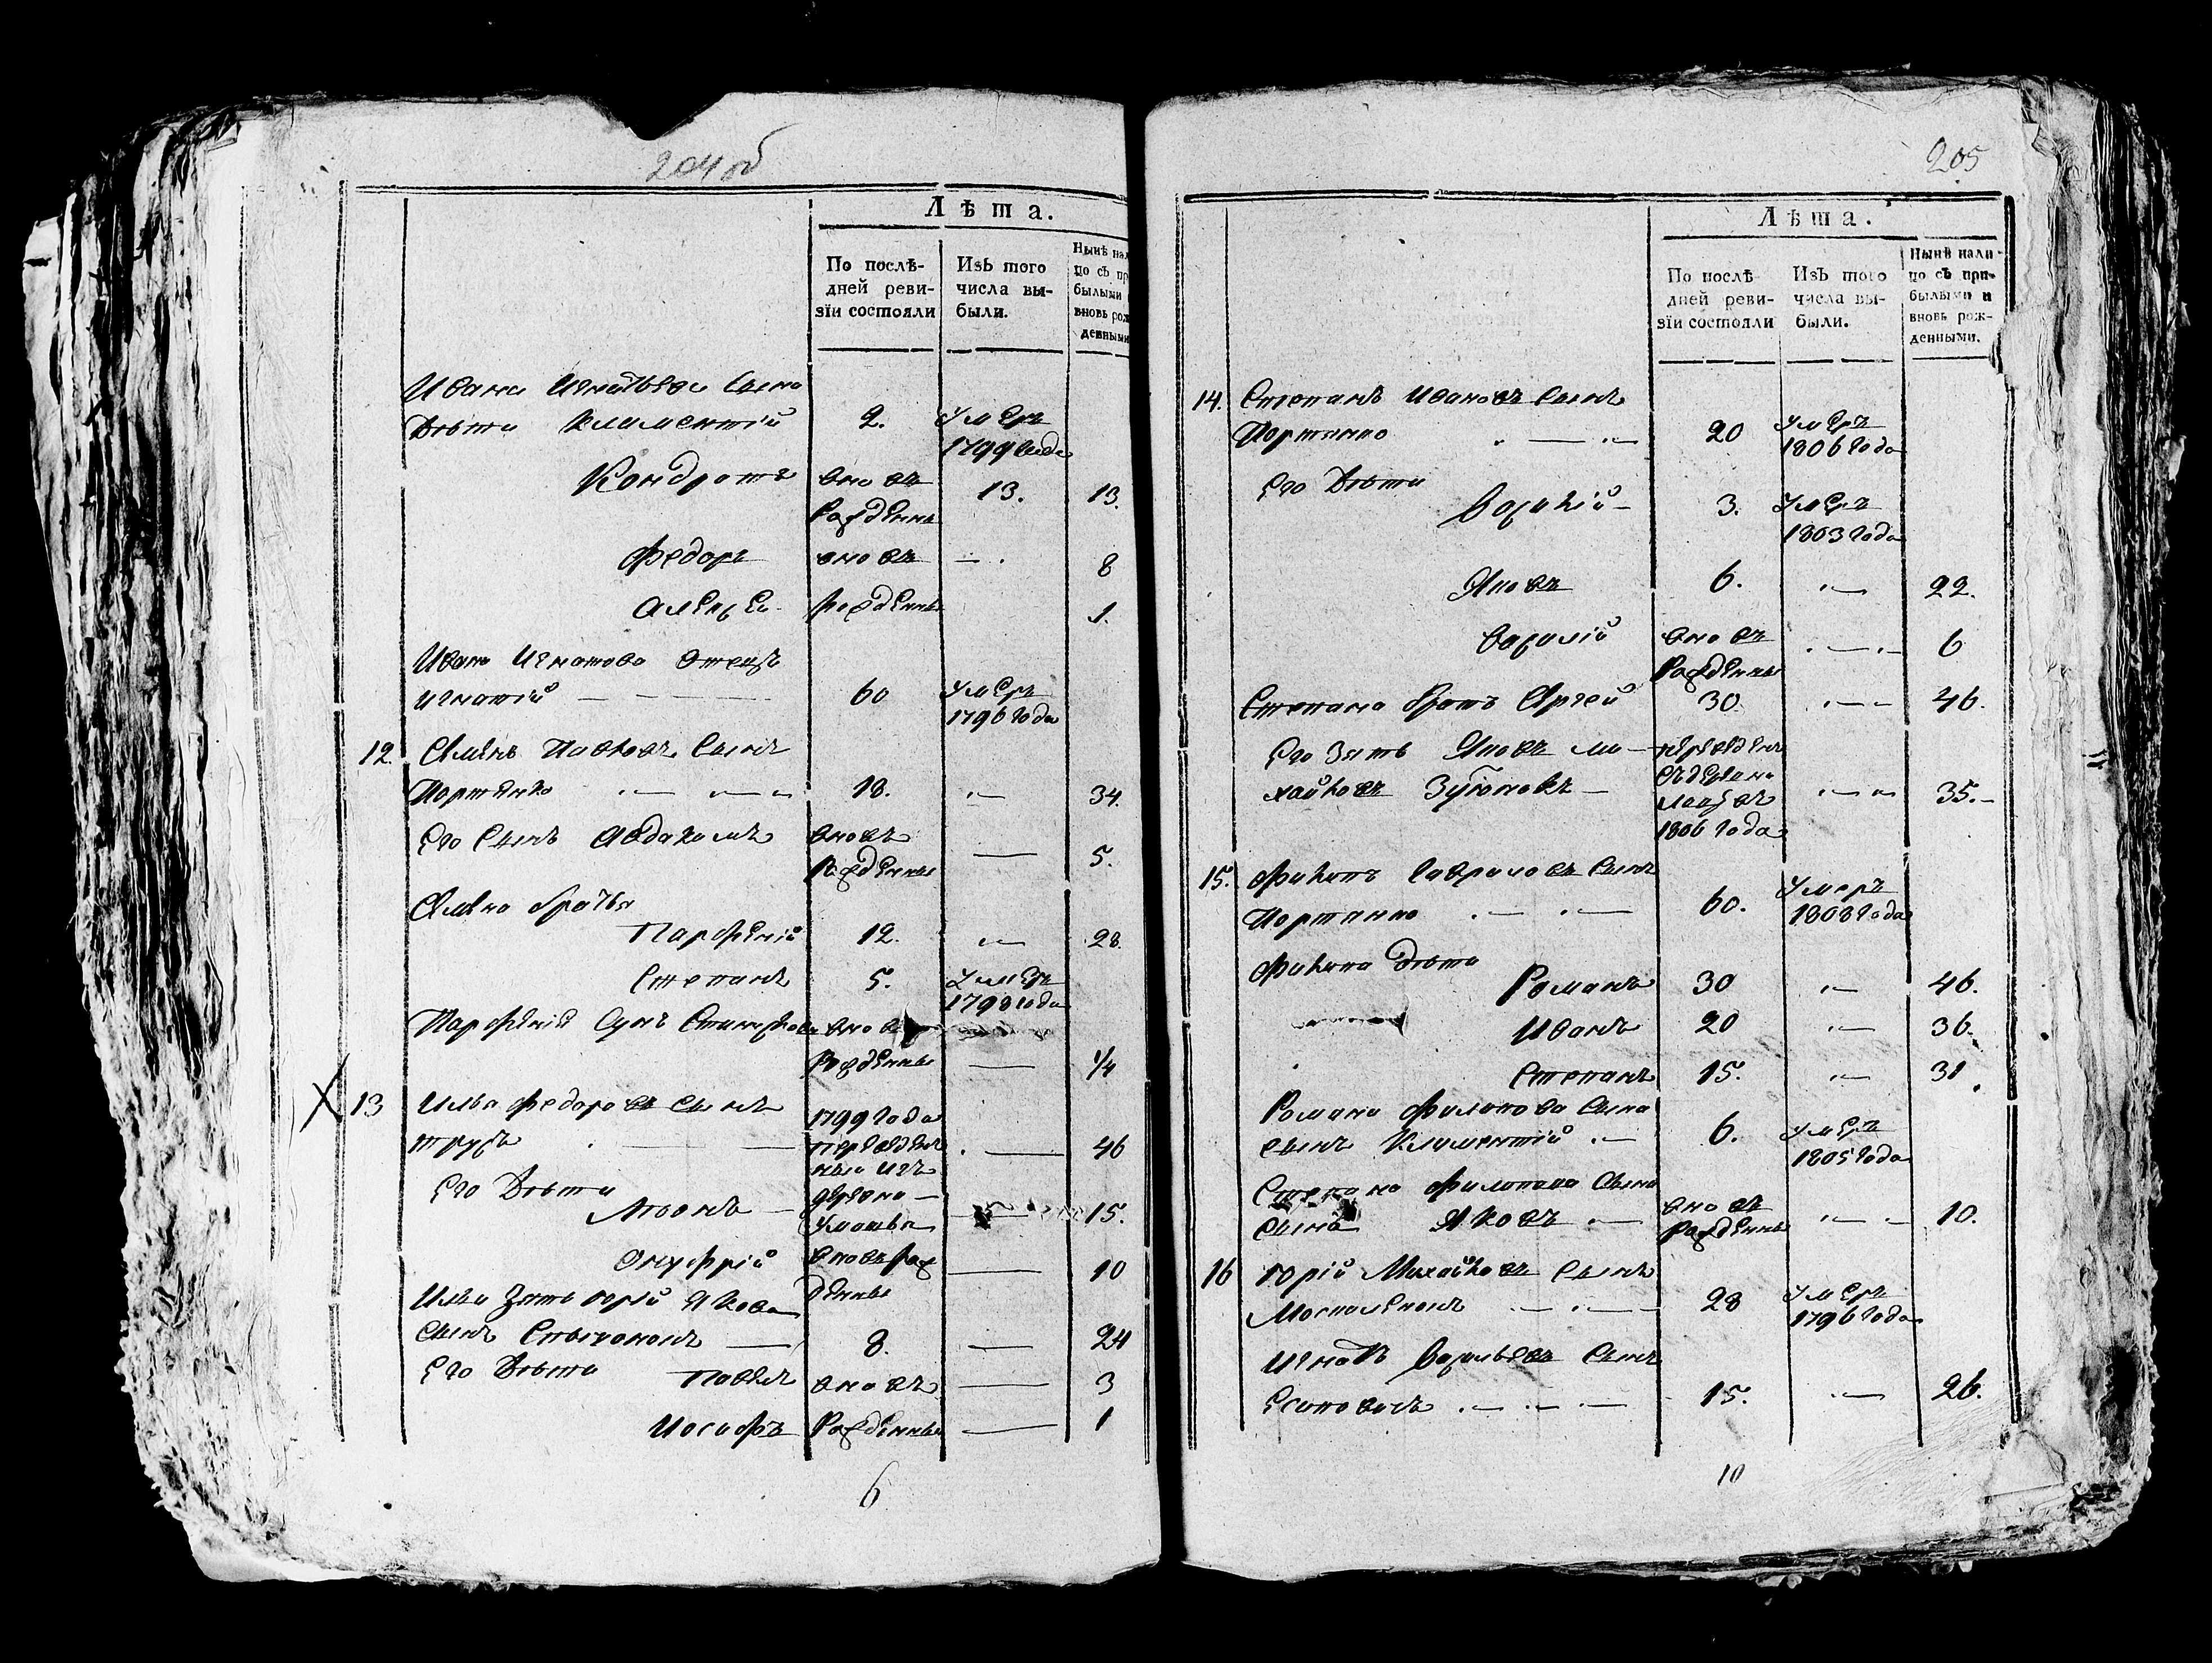 204об
Лѣта.
По послѣ-
дней реви-
зїи состояли
Изъ того
числа вы-
были.
Нынѣ нал
цо съ пр
былыми
вновь рож
денными
Ивана Игнатьева сына
Дѣти Климентій 2. умеръ
1799 года
Кондратъ вновь 13. 13.
рожденны
Федоръ вновь 8
Алексей рожденны 1.
Ивана Игнатова отецъ
Игнатій 60 умеръ
1796 года
12. Семенъ Павловъ сынъ
18. 34.
Его сынъ вновь
рожденны 5.
Семена братья
Парфеній 12. 28.
Степанъ 5. умеръ
1798 года
Парфенія сынъ вновь
рожденны 1/4
13 Илья Федоровъ сынъ 1799 года
переведен 46
ные изъ
Его Дѣти деревни
15.
Онуфрій вновь рож 10
Ильи зять Юрій Якова денны
сынъ 8. 24
Его Дѣти Павелъ вновь 3
Иосифъ рожденны 1
6
205
Лѣта.
По послѣ
дней реви-
зїи состояли
Изъ того
числа вы-
были.
Нынѣ нали-
цо съ при-
былыми и
вновь рож-
денными.
14. Степанъ Ивановъ сынъ
20 умеръ
1806 года
Его Дѣти
3. умеръ
1803 года
Яковъ 6. 22.
Василій вновь 6
рожденны
Степана братъ Сергей 30. 46.
Его зять Яковъ Ми- переведенъ
хайловъ
35.
1806 года
15. Филипъ Гавриловъ сынъ
60. умеръ
1808 года
Филипа дѣти
Романъ 30 46.
Иванъ 20 36.
Степанъ 15. 31
Романа Филипова сына
сынъ Климентій 6. умеръ
1805 года
Степана Филипова сына
сынъ Яковъ вновь 10.
рожденны
16 Юрій Михайловъ сынъ
28 умеръ
1796 года
Игнатъ Васильевъ сынъ
15. 26.
10